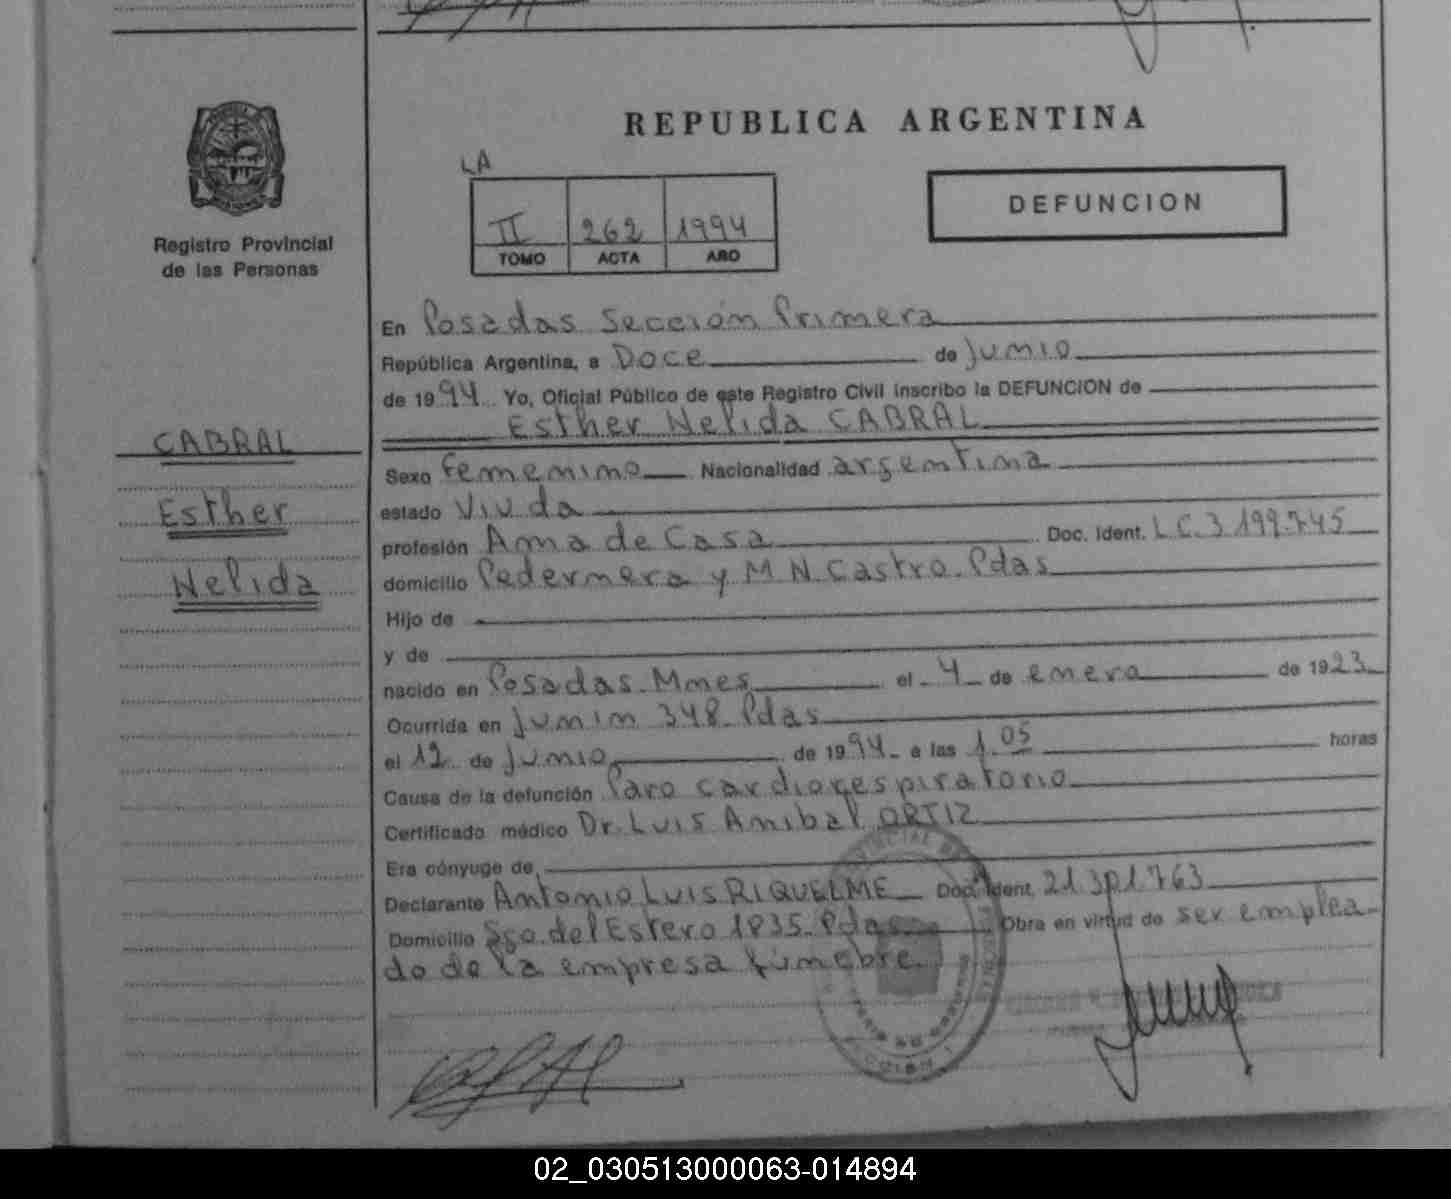 REPUBLICA ARGENTINA
LA
II 262 1994
TOMO ACTA AÑO
DEFUNCION
Registro Provincial
de las Personas
CABRAL
Esther
Nelida
En Posadas Sección Primera
República Argentina, a Doce de Junio
de 1994 Yo, Oficial Público de este Registro Civil inscribo la DEFUNCION de
Esther Nelida CABRAL
Sexo femenino Nacionalidad argentina
estado Viuda
profesión Ama de Casa Doc. Ident. L.C. 3.199.745
domicilio Pedernera y M N Castro. Pdas
Hijo de
y de
nacido en Posadas. Mnes el 4 de enero de 1923
Ocurrida en Junin 348. Pdas
el 12 de Junio de 1994 a las 1.05 horas
Causa de la defunción Paro cardiorespiratorio
Certificado médico Dr. Luis Anibal ORTIZ
Era cónyuge de
Declarante Antonio Luis RIQUELME Doc. Ident. 21.301.763
Domicilio Sgo. del Estero 1835. Pdas Obra en virtud de ser emplea
do de la empresa fúnebre.
02_030513000063-014894